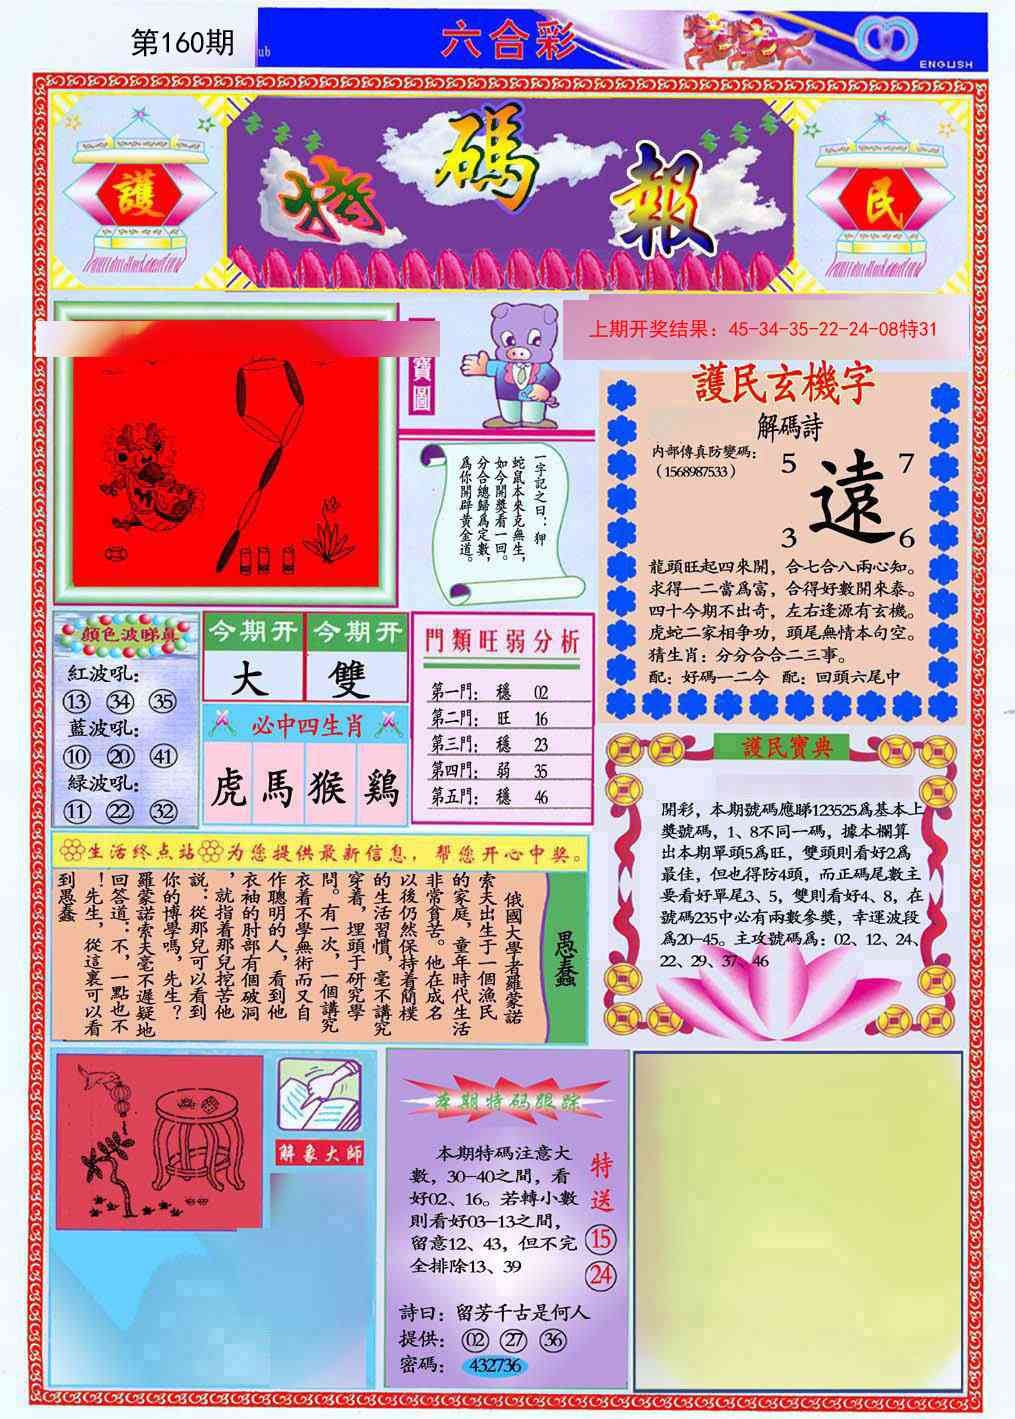 第160期
六合彩
ENGLISH
護
特碼報
民
寶圖
上期开奖结果：45-34-35-22-24-08特31
一字記之曰：狎
蛇鼠本來克無生，
如今開獎看一回。
分合總歸爲定數，
爲你開辟黃金道。
護民玄機字
解碼詩
内部傳真防變碼：
（1568987533）
5 7
遠
3 6
龍頭旺起四來開，合七合八兩心知。
求得一二當爲富，合得好數開來泰。
四十今期不出奇，左右逢源有玄機。
虎蛇二家相争功，頭尾無情本句空。
猜生肖：分分合合二三事。
配：好碼一二今 配：回頭六尾中
顔色波睇真
紅波吼：
13 34 35
藍波吼：
10 20 41
緑波吼：
11 22 32
今期开 今期开
大 雙
必中四生肖
虎 馬 猴 鷄
門類旺弱分析
第一門： 穩 02
第二門： 旺 16
第三門： 穩 23
第四門： 弱 35
第五門： 穩 46
護民寶典
開彩，本期號碼應睇123525爲基本上
獎號碼，1、8不同一碼，據本欄算
出本期單頭5爲旺，雙頭則看好2爲
最佳，但也得防4頭，而正碼尾數主
要看好單尾3、5，雙則看好4、8，在
號碼235中必有兩數參獎，幸運波段
爲20-45。主攻號碼爲：02、12、24、
22、29、37、46
生活终点站 为您提供最新信息，帮您开心中奖。
愚蠢
俄國大學者羅蒙諾
索夫出生于一個漁民
的家庭，童年時代生活
非常貧苦。他在成名
以後仍然保持着簡樸
的生活習慣，毫不講究
穿着，埋頭于研究學
問。有一次，一個講究
衣着不學無術而又自
作聰明的人，看到他
衣袖的肘部有個破洞
，就指着那兒挖苦他
説：從那兒可以看到
你的博學嗎，先生？
羅蒙諾索夫毫不遲疑地
回答道：不，一點也不
！先生，從這裏可以看
到愚蠢
解象大師
本期特码跟踪
本期特碼注意大
數，30-40之間，看
好02、16。若轉小數
則看好03-13之間，
留意12、43，但不完
全排除13、39
特送
15
24
詩曰：留芳千古是何人
提供：02 27 36
密碼：432736